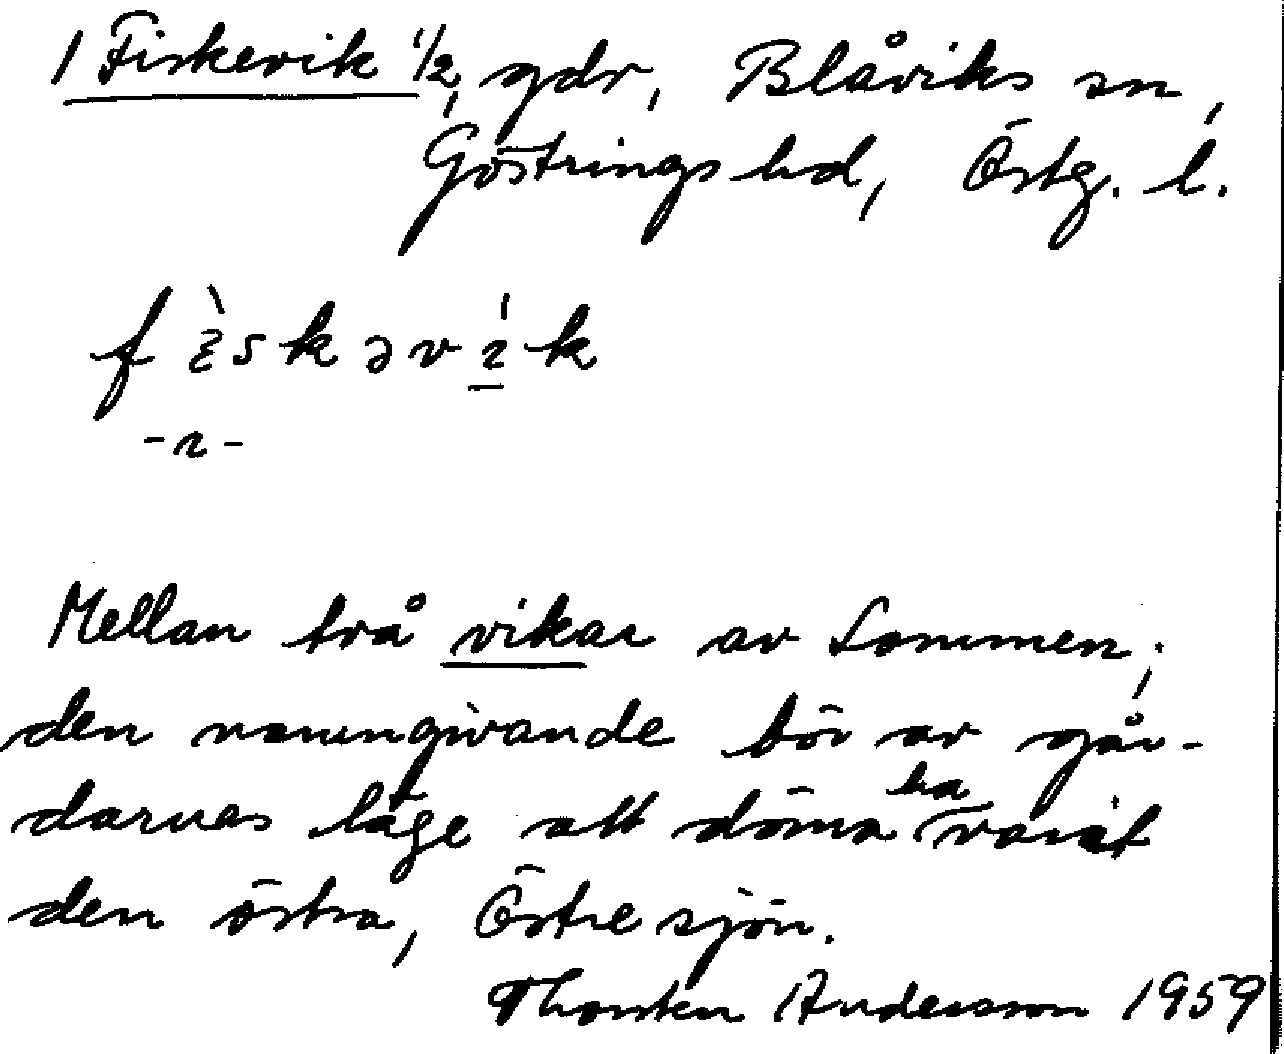 1 Fiskevik 1/2, gdr, Blåviks sn,
Göstrings hd, Östg. l.
f ὲskəvík
-ɩ-
Mellan två vikar av Sommen;
den namngivande bör av går-
darnas läge att döma ha varit
den östra, Östre sjön.
Thorsten Andersson 1959